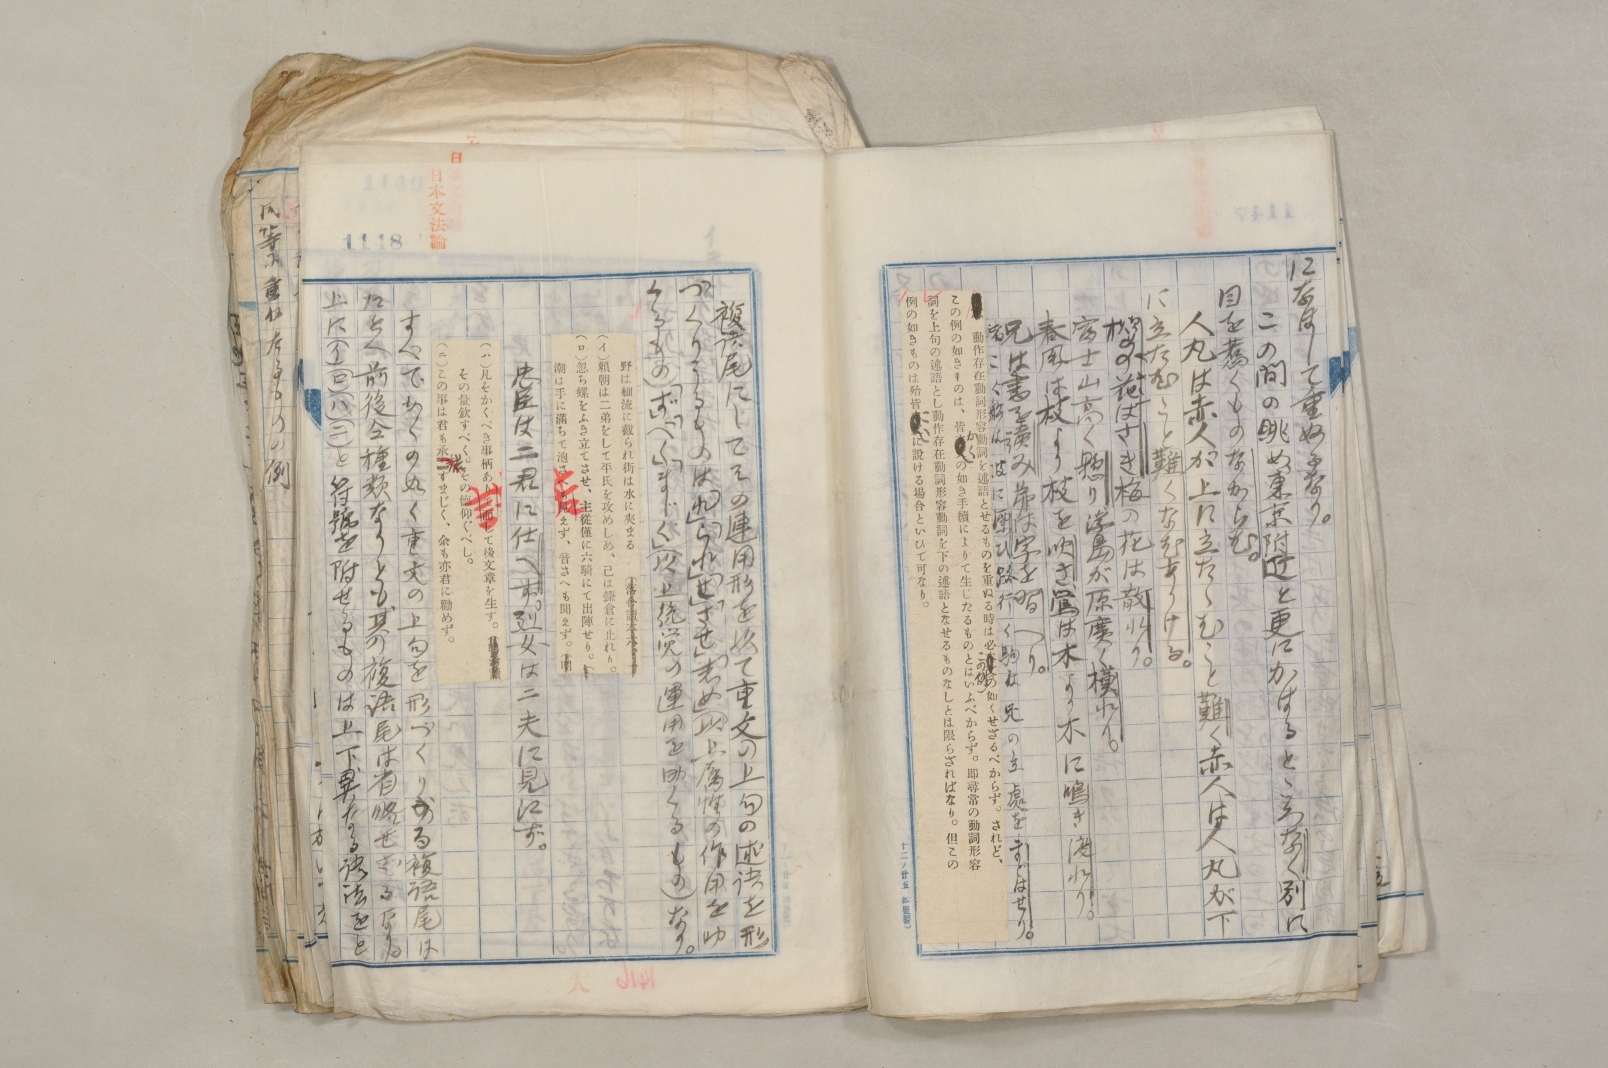 になほして重ぬるなり。
この間の眺め東京附近と更にかはるところなく別に
目を驚くものなからむ。
人丸は赤人が上に立たむこと難く赤人は人丸が下
に立たむこと難くなむありける。
の花はさき梅の花は散れり。
富士山高く懸り浮島が原廣く横れり。
春風は枝より枝を吹き鶯は木より木に鳴き渡れり。
兄は書を讀み弟は字を習へり。
動作存在動詞形容動詞を述語とせるものを重ぬる時は必この例の如くせざるべからず。されど、
この例の如きものは、皆かくの如き手續によりて生じたるものとはいふべからず。即尋常の動詞形容
詞を上句の述語とし動作存在動詞形容動詞を下の述語となせるものなしとは限らざればなり。但この
例の如きものは殆皆に説ける場合といひて可なり。
十二ノ廿五
日本文法論
1118
複語尾にしてその連用形を以て重文の上句の述語を形
づくりうるものは「れ」「られ」「せ」「させ」「しめ」以上屬性の作用を助
くるもの)「ず」「べく」「まじく」(以上統覺の運用を助くるもの)なり。
野は細流に截られ街は水に夾まる
(イ)賴朝は二弟をして平氏を攻めしめ、己は鎌倉に止れり。
(ロ)忽ち螺をふき立てさせ、主從僅に六騎にて出陣せり。
潮は手に滿ちて泡さへも見えず、音さへも聞えず。
忠臣は二君に仕へず、烈女は二夫に見にず。
(ハ)凡そかくべき事柄ありて後文章を生ず。
その量欽すべく、その德仰ぐべし。
(ニ)この事は君も承すまじく、余も亦君に勸めず。
すべてかくの如く重文の上句を形づくりうる複語尾は
たとへ前後全種類なりとも其の複語尾は省略せざるなり。
上に(イ)(ロ)(ハ)(ニ)と符號を附せるものは上下異なる語法をと
1416